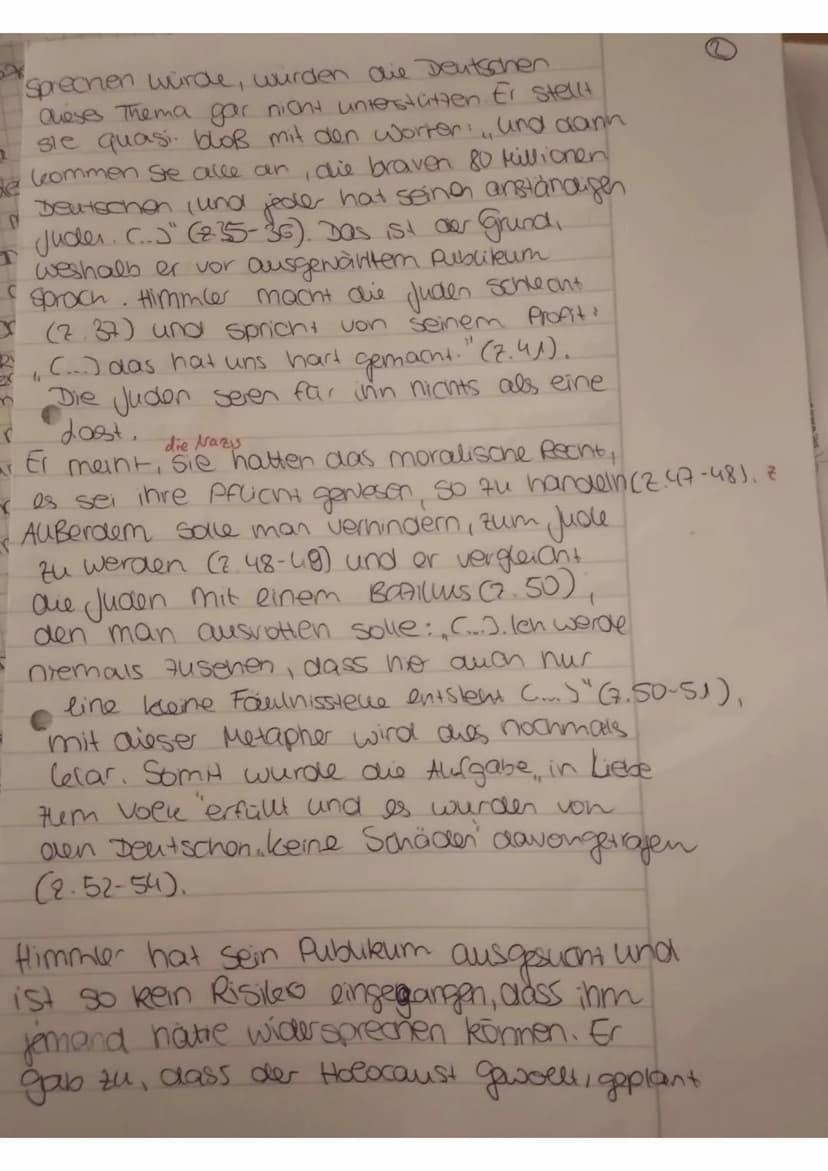 2
sprechen würde, würden die Deutschen
dieses Thema gar nicht unterstützen Er stellt
sie quasi bloß mit den Worten: „Und dann
kommen sie alle an, die braven 80 Millionen
Deutschen, und jeder hat seinen anständigen
Juden. (...)" (Z 35-36). Das ist der Grund,
weshalb er vor ausgewähltem Publikum
sprach. Himmler macht die Juden schlecht
(Z. 37) und spricht von seinem Profit:
„(...) das hat uns hart gemacht." (Z. 41).
Die Juden seien für ihn nichts als eine
Last.
die Nazis
Er meint, sie hätten das moralische Recht,
es sei ihre Pflicht gewesen, so zu handeln (Z. 47-48). z
Außerdem solle man verhindern, zum Jude
zu werden (Z. 48-49) und er vergleicht
die Juden mit einem Bazillus (Z. 50),
den man ausrotten solle: „(...). Ich werde
niemals zusehen, dass hie auch nur
eine kleine Fäulnisstelle entsteht (...)" (Z. 50-51),
mit dieser Metapher wird dies nochmals
klar. Somit wurde die Aufgabe „in Liebe
zum Volk" erfüllt und es wurden von
den Deutschen „keine Schäden" davongetragen
(Z. 52-54).
Himmler hat sein Publikum ausgesucht und
ist so kein Risiko eingegangen, dass ihm
jemand hätte widersprechen können. Er
gab zu, dass der Holocaust gewollt, geplant